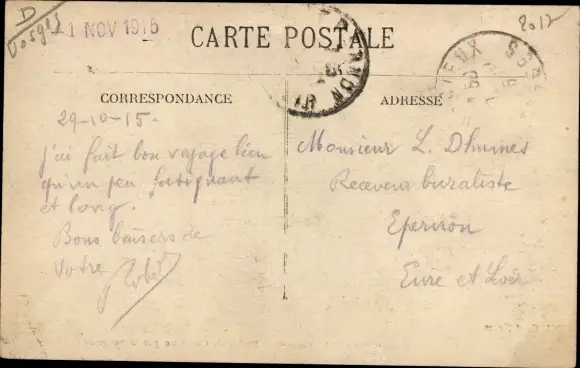 D
Vosges
1 NOV 1915
2017
CARTE POSTALE
CORRESPONDANCE
29-10-15-
J'ai fait bon voyage bien
qu'un peu fatiguant
et long.
Bons baisers de
Votre
ADRESSE
Monsieur L. Dhumes
Receveur buraliste
Epernon
Eure et Loir